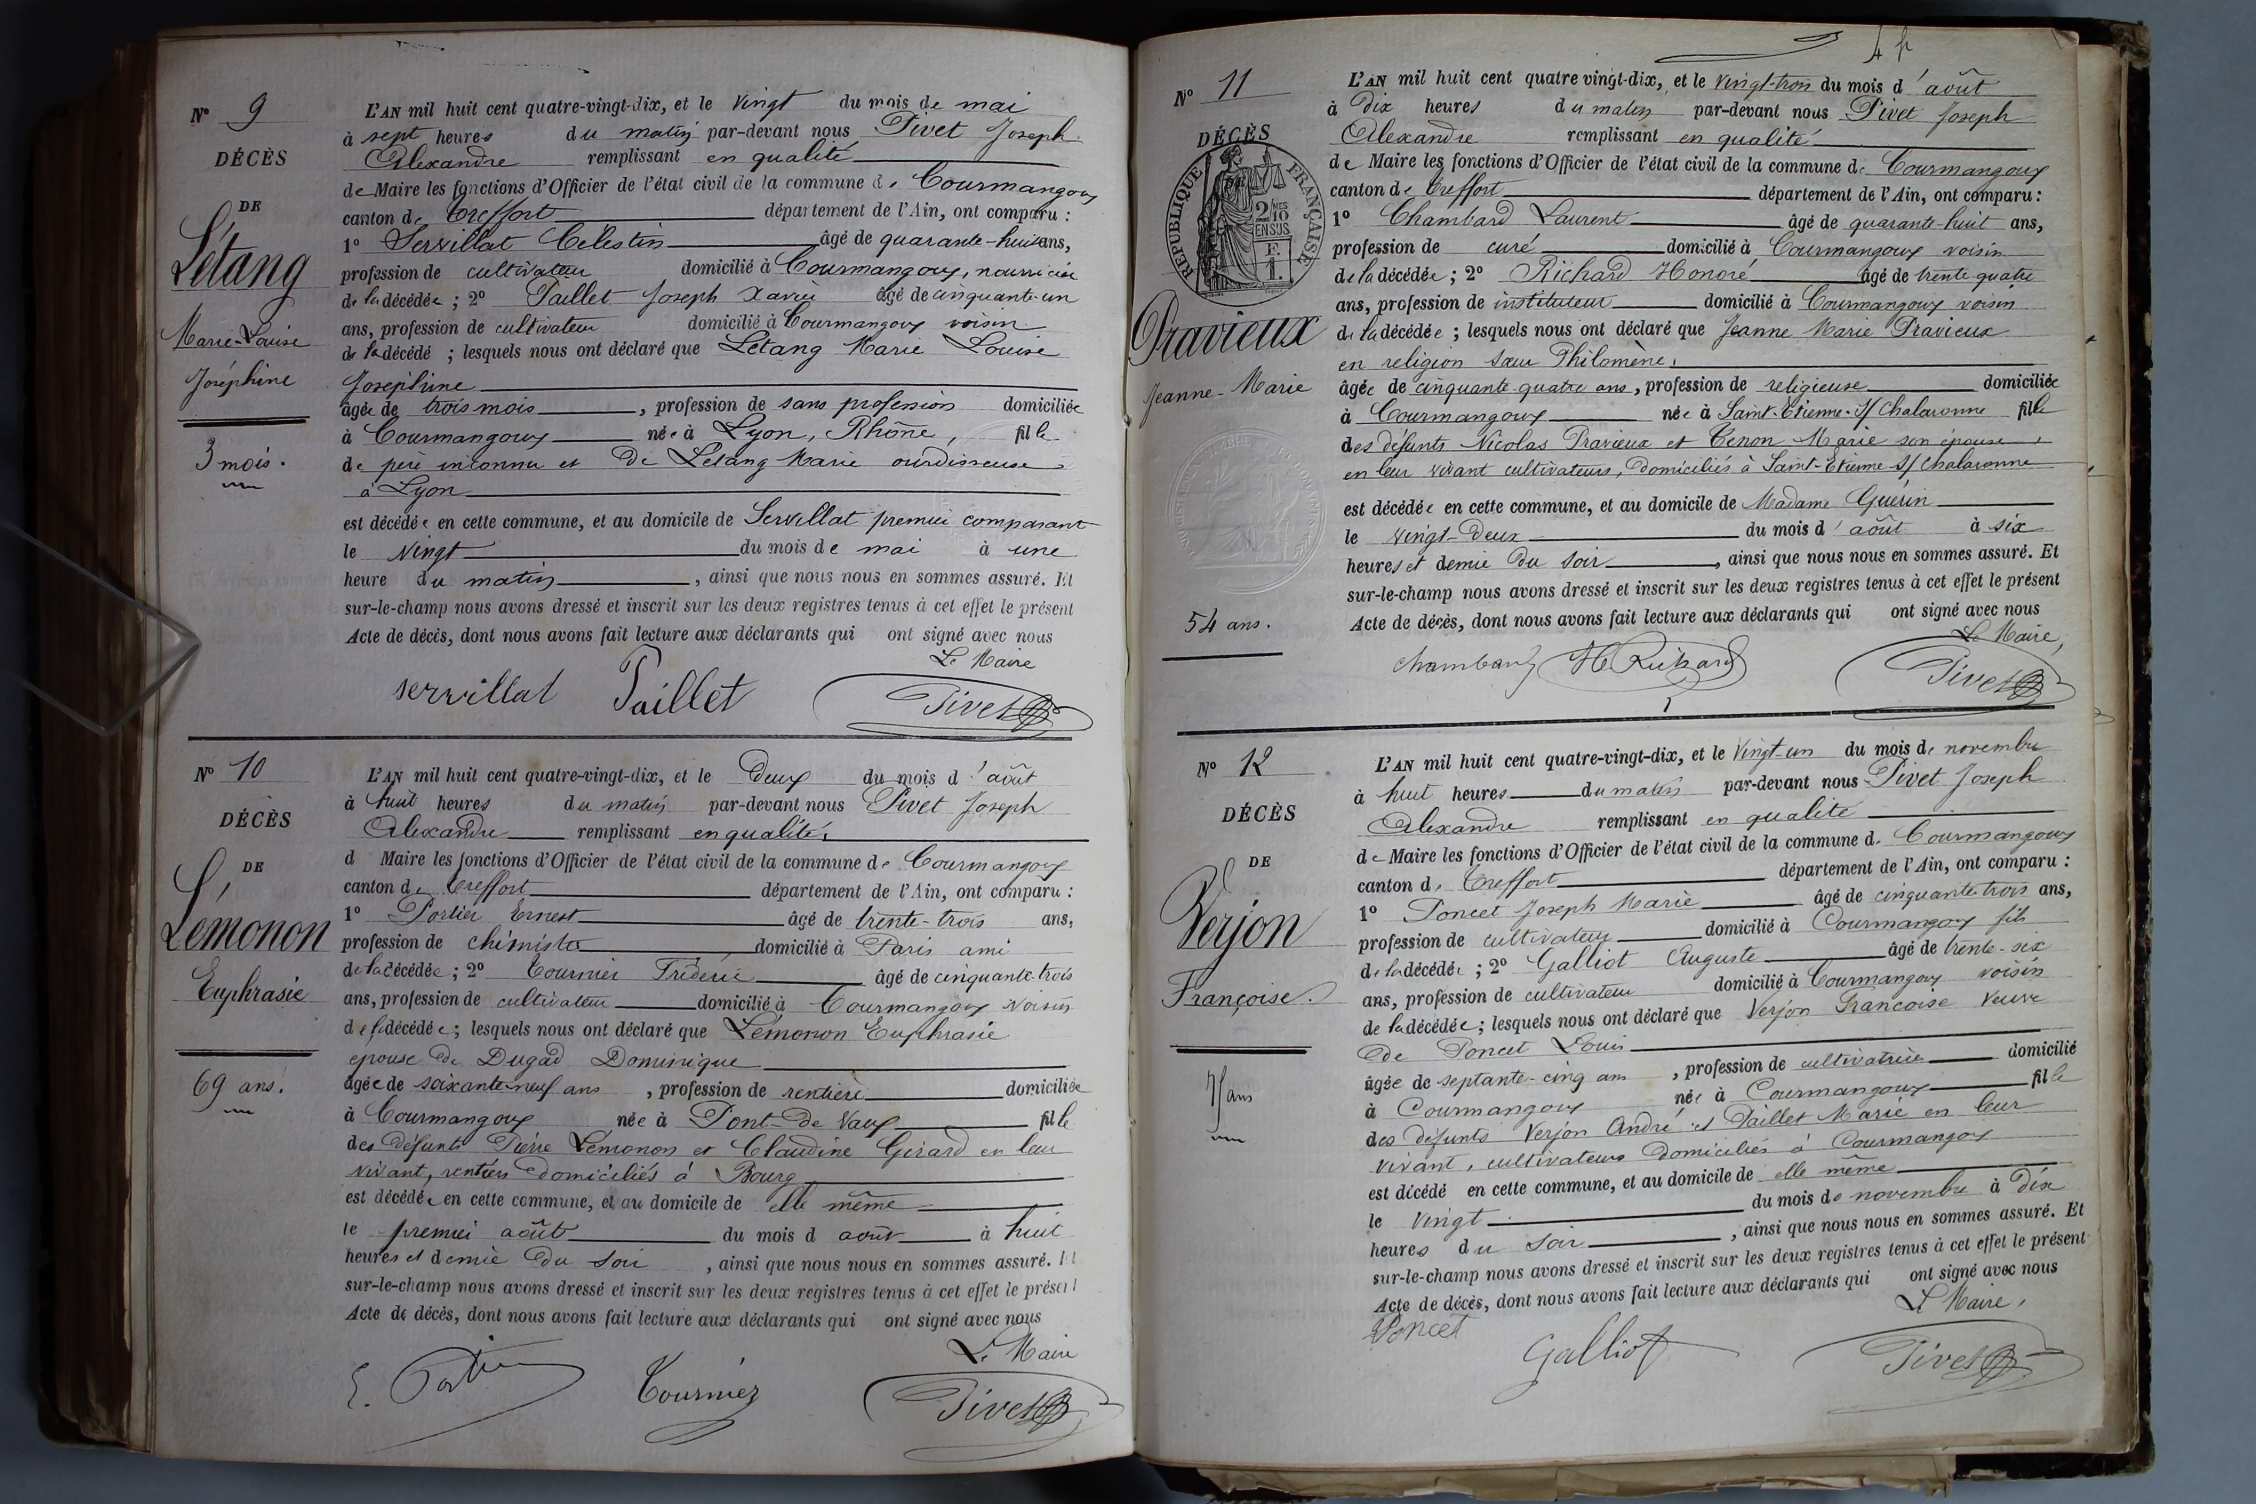 Nº 9
DÉCÈS
DE
Létang
Marie-Louise
Joséphine
3 mois.
L'AN mil huit cent quatre-vingt-dix, et le vingt du mois de mai
à sept heures du matin par-devant nous Pivet Joseph
Alexandre remplissant en qualité
de Maire les fonctions d'Officier de l'état civil de la commune de Courmangoux
canton de Treffort département de l'Ain, ont comparu :
1º Servillat Célestin âgé de quarante-huit ans,
profession de cultivateur domicilié à Courmangoux, nourricier
de la décédée ; 2º Paillet Joseph Xavier âgé de cinquante-un
ans, profession de cultivateur domicilié à Courmangoux voisin
de la décédé ; lesquels nous ont déclaré que Létang Marie Louise
Joséphine
âgée de trois mois, profession de sans profession domiciliée
à Courmangoux née à Lyon, Rhône, fille
de père inconnu et de Létang Marie ourdisseuse
à Lyon
est décédée en cette commune, et au domicile de Servillat premier comparant
le vingt du mois de mai à une
heure du matin, ainsi que nous nous en sommes assuré. Et
sur-le-champ nous avons dressé et inscrit sur les deux registres tenus à cet effet le présent
Acte de décès, dont nous avons fait lecture aux déclarants qui ont signé avec nous
Le Maire
servillat Paillet Pivet
Nº 10
DÉCÈS
DE
Lémonon
Euphrasie
69 ans.
L'AN mil huit cent quatre-vingt-dix, et le deux du mois d'août
à huit heures du matin par-devant nous Pivet Joseph
Alexandre remplissant en qualité,
d Maire les fonctions d'Officier de l'état civil de la commune de Courmangoux
canton de Treffort département de l'Ain, ont comparu :
1º Portier Ernest âgé de trente-trois ans,
profession de chimiste domicilié à Paris ami
de la décédée ; 2º Tournier Fréderic âgé de cinquante-trois
ans, profession de cultivateur domicilié à Courmangoux voisin
de la décédée ; lesquels nous ont déclaré que Lémonon Euphrasie
épouse de Dugad Dominique
âgée de soixante-neuf ans, profession de rentière domiciliée
à Courmangoux née à Pont-de-Vaux fille
des défunts Pierre Lémonon et Claudine Girard en leur
vivant, rentiers domiciliés à Bourg
est décédée en cette commune, et au domicile de elle même
le premier août du mois d août à huit
heures et demie du soir, ainsi que nous nous en sommes assuré. Et
sur-le-champ nous avons dressé et inscrit sur les deux registres tenus à cet effet le présent
Acte de décès, dont nous avons fait lecture aux déclarants qui ont signé avec nous
Le Maire
E. Portier Tournier Pivet
Nº 11
DÉCÈS
RÉPUBLIQUE FRANÇAISE
2/10 EN SUS
Pravieux
Jeanne-Marie
54 ans.
L'AN mil huit cent quatre vingt-dix, et le vingt-trois du mois d'août
à dix heures du matin par-devant nous Pivet Joseph
Alexandre remplissant en qualité
de Maire les fonctions d'Officier de l'état civil de la commune de Courmangoux
canton de Treffort département de l'Ain, ont comparu :
1º Chambard Laurent âgé de quarante-huit ans,
profession de curé domicilié à Courmangoux voisin
de la décédée ; 2º Richard Honoré âgé de trente quatre
ans, profession de instituteur domicilié à Courmangoux voisin
de la décédée ; lesquels nous ont déclaré que Jeanne Marie Pravieux
en religion sœur Philomène,
âgée de cinquante-quatre ans, profession de religieuse domiciliée
à Courmangoux née à Saint-Etienne-s/Chalaronne fille
des défunts Nicolas Pravieux et Tenon Marie son épouse,
en leur vivant cultivateurs, domiciliés à Saint-Etienne s/Chalaronne
est décédée en cette commune, et au domicile de Madame Guérin
le vingt-deux du mois d'août à six
heures et demie du soir, ainsi que nous nous en sommes assuré. Et
sur-le-champ nous avons dressé et inscrit sur les deux registres tenus à cet effet le présent
Acte de décès, dont nous avons fait lecture aux déclarants qui ont signé avec nous
Le Maire,
Chambard H Richard Pivet
Nº 12
DÉCÈS
DE
Verjon
Françoise.
75 ans
L'AN mil huit cent quatre-vingt-dix, et le vingt-un du mois de novembre
à huit heures du matin par-devant nous Pivet Joseph
Alexandre remplissant en qualité
de Maire les fonctions d'Officier de l'état civil de la commune de Courmangoux
canton de Treffort département de l'Ain, ont comparu :
1º Poncet Joseph Marie âgé de cinquante-trois ans,
profession de cultivateur domicilié à Courmangoux fils
de la décédée ; 2º Galliot Auguste âgé de trente-six
ans, profession de cultivateur domicilié à Courmangoux voisin
de la décédée ; lesquels nous ont déclaré que Verjon Francoise veuve
de Poncet Louis
âgée de septante-cinq ans, profession de cultivatrice domicilié
à Courmangoux née à Courmangoux fille
des défunts Verjon André et Paillet Marie en leur
vivant, cultivateurs domiciliés à Courmangoux
est décédé en cette commune, et au domicile de elle même
le vingt du mois de novembre à dix
heures du soir, ainsi que nous nous en sommes assuré. Et
sur-le-champ nous avons dressé et inscrit sur les deux registres tenus à cet effet le présent
Acte de décès, dont nous avons fait lecture aux déclarants qui ont signé avec nous
Le Maire,
Poncet Galliot Pivet